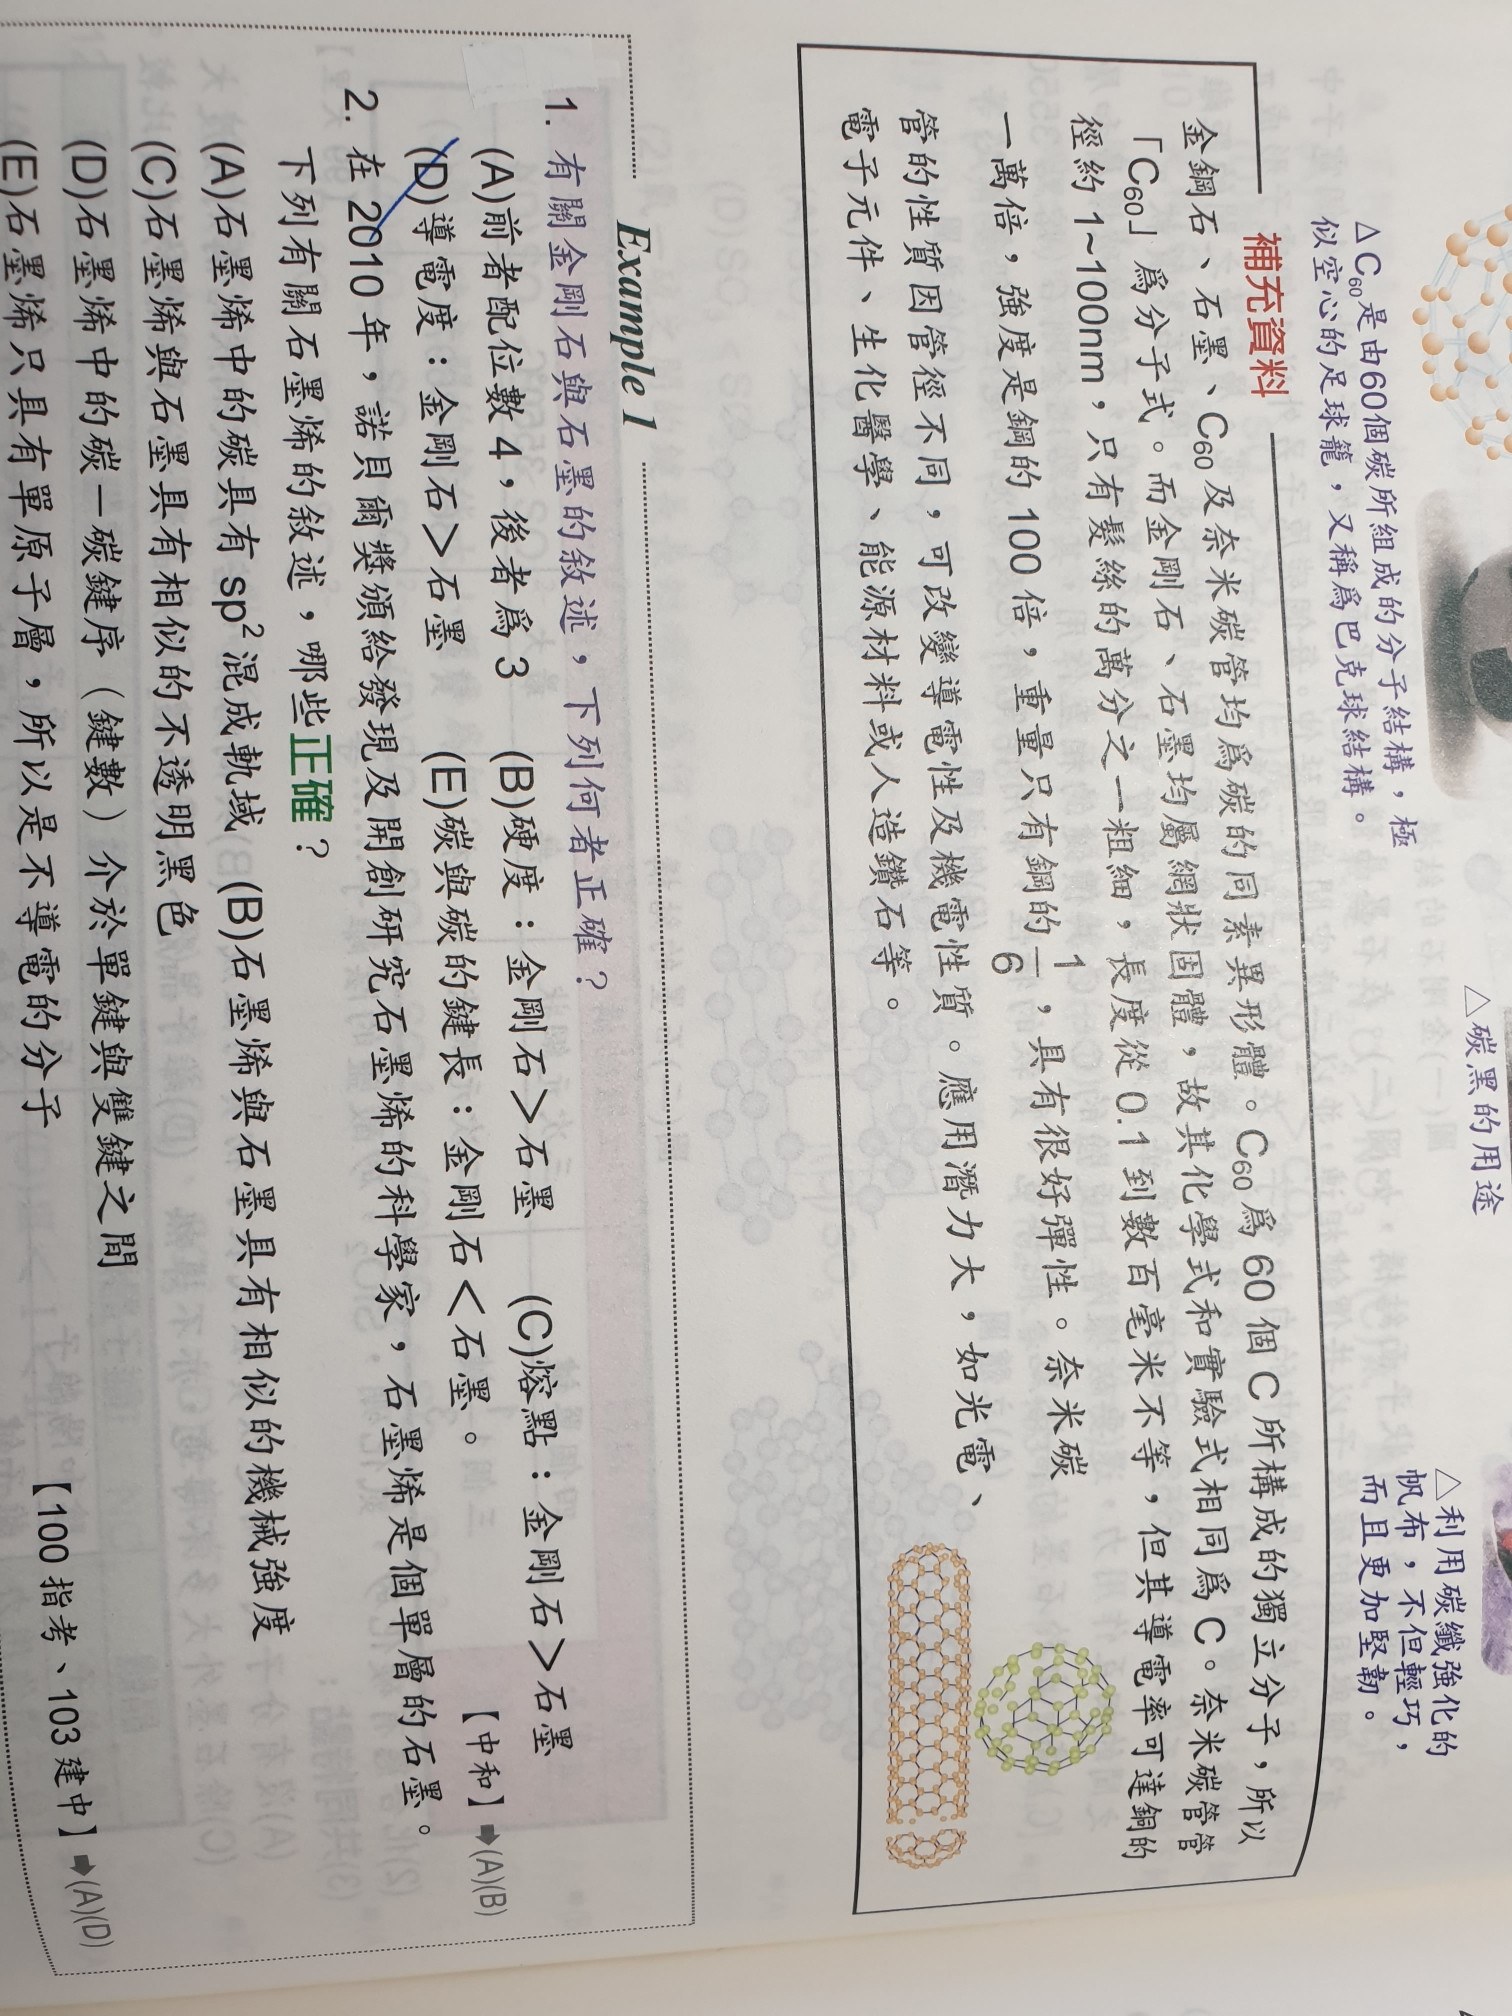 △C60是由60個碳所組成的分子結構，極
似空心的足球籠，又稱爲巴克球結構。
△碳黑的用途
△利用碳纖強化的
帆布，不但輕巧，
而且更加堅韌。
補充資料
金鋼石、石墨、C60及奈米碳管均爲碳的同素異形體。C60爲60個C所構成的獨立分子，所以
「C60」爲分子式。而金剛石、石墨均屬網狀固體，故其化學式和實驗式相同爲C。奈米碳管管
徑約1~100nm，只有髮絲的萬分之一粗細，長度從0.1到數百毫米不等，但其導電率可達銅的
一萬倍，強度是鋼的100倍，重量只有鋼的1/6，具有很好彈性。奈米碳
管的性質因管徑不同，可改變導電性及機電性質。應用潛力大，如光電、
電子元件、生化醫學、能源材料或人造鑽石等。
Example 1
1. 有關金剛石與石墨的敘述，下列何者正確？
(A)前者配位數4，後者爲3 (B)硬度：金剛石＞石墨 (C)熔點：金剛石＞石墨
(D)導電度：金剛石＞石墨 (E)碳與碳的鍵長：金剛石＜石墨。 【中和】➡(A)(B)
2. 在2010年，諾貝爾獎頒給發現及開創研究石墨烯的科學家，石墨烯是個單層的石墨。
下列有關石墨烯的敘述，哪些正確？
(A)石墨烯中的碳具有sp²混成軌域 (B)石墨烯與石墨具有相似的機械強度
(C)石墨烯與石墨具有相似的不透明黑色
(D)石墨烯中的碳－碳鍵序（鍵數）介於單鍵與雙鍵之間
(E)石墨烯只具有單原子層，所以是不導電的分子 【100指考、103建中】➡(A)(D)